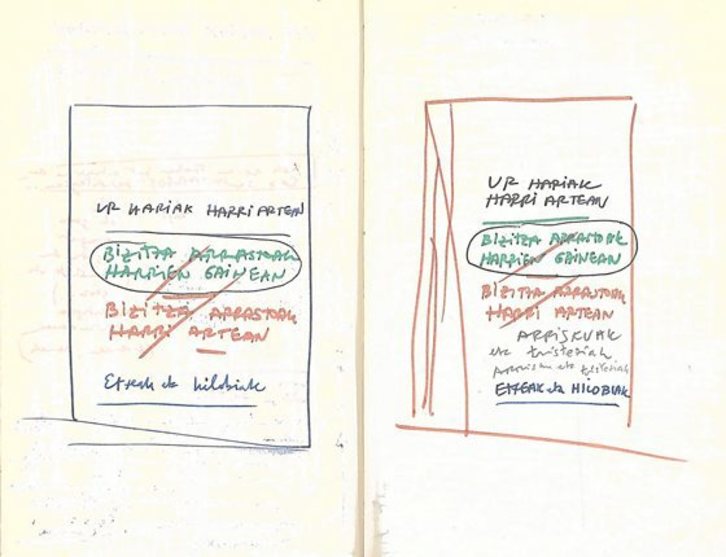 UR HARIAK HARRI ARTEAN
BIZITZA ARRASTOAK
HARRIEN GAINEAN
BIZITZA ARRASTOAK
HARRI ARTEAN
Etxeak eta hilobiak
UR HARIAK
HARRI ARTEAN
BIZITZA ARRASTOAK
HARRIEN GAINEAN
BIZITZA ARRASTOAK
HARRI ARTEAN
ARRISKUAK
eta tristeziak
ARRISKU eta tristeziak
ETXEAK eta HILOBIAK